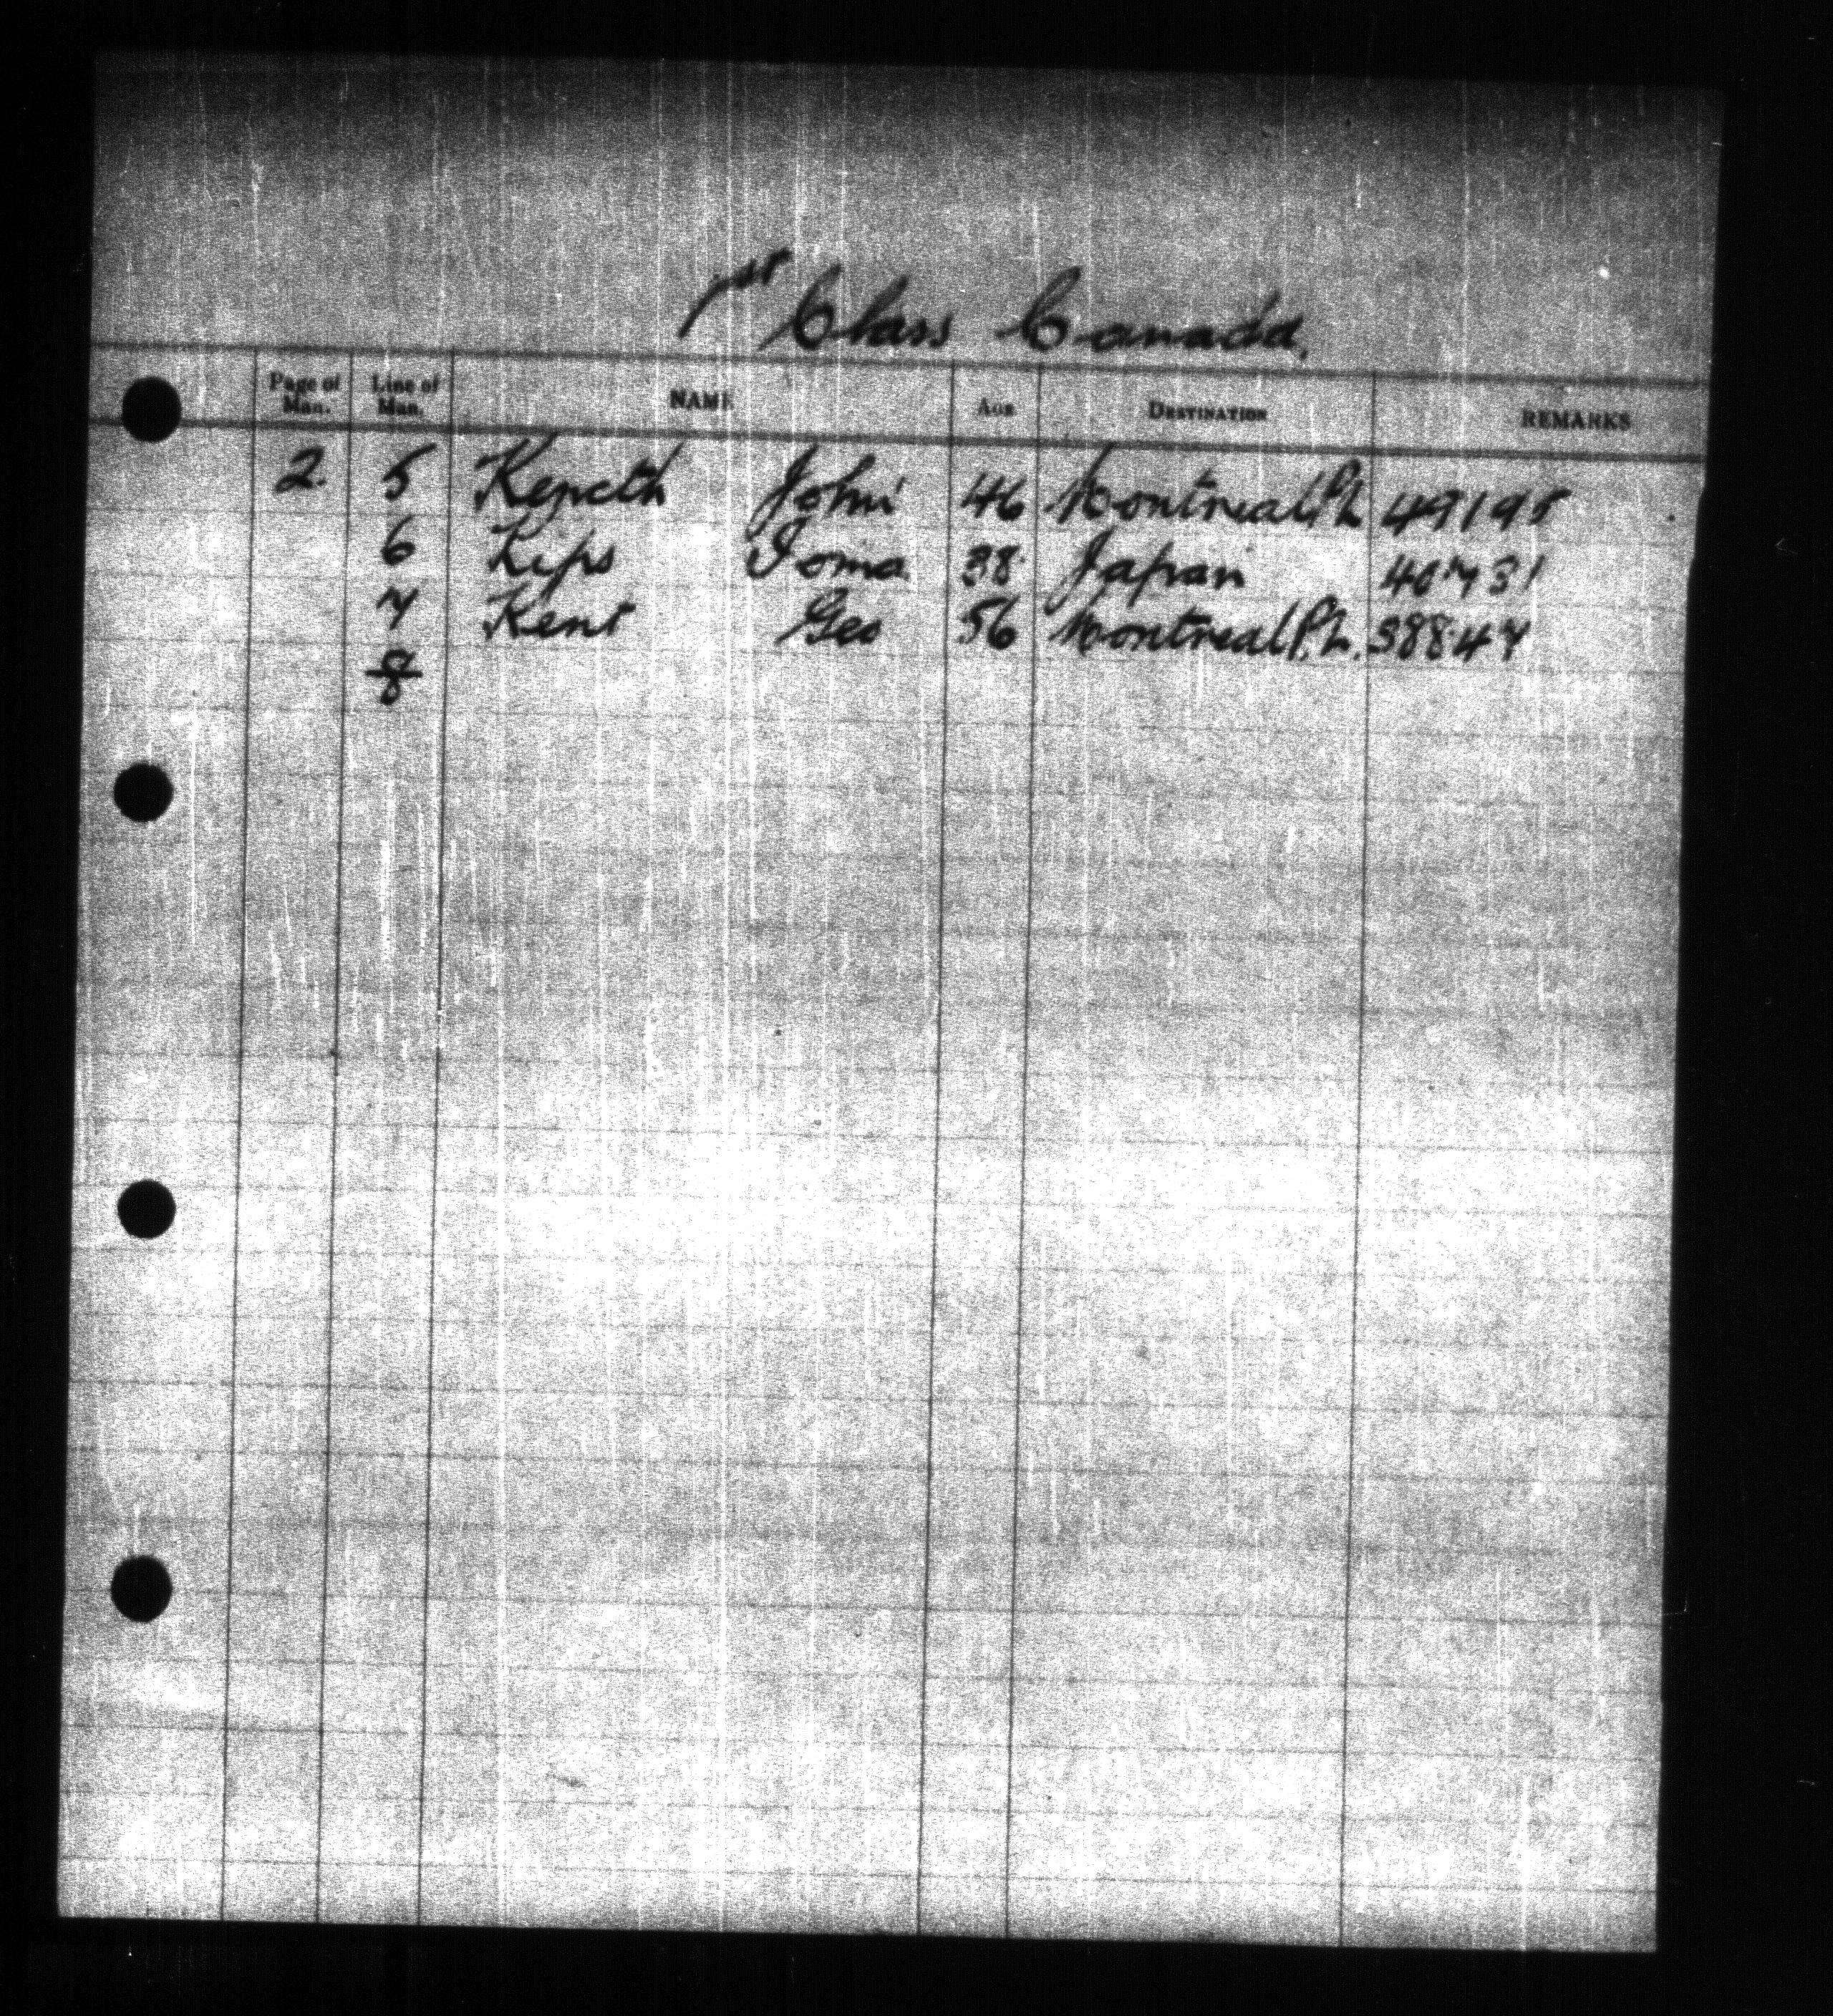 1st Class Canada.
Page of Man. Line of Man. NAME AGE DESTINATION REMARKS
2. 5 John 46 Montreal P.L 49195
6 Kips 38 Japan 40731
7 Kent Geo 56 Montreal P.L. 38847
8